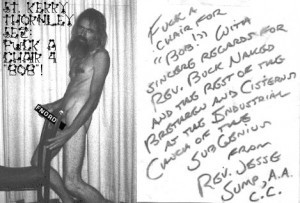 St. Kerry
Thornley
sez:
Fuck a
chair 4
"Bob"!
FNORD
Fuck a
chair for
"Bob!" with
sincere regards for
Rev. Buck Naked
and the rest of the
Brethren and Cisterns
at the Industrial
Church of the
SubGenius
from
Rev. Jesse
Sump, A.A.
C.C.